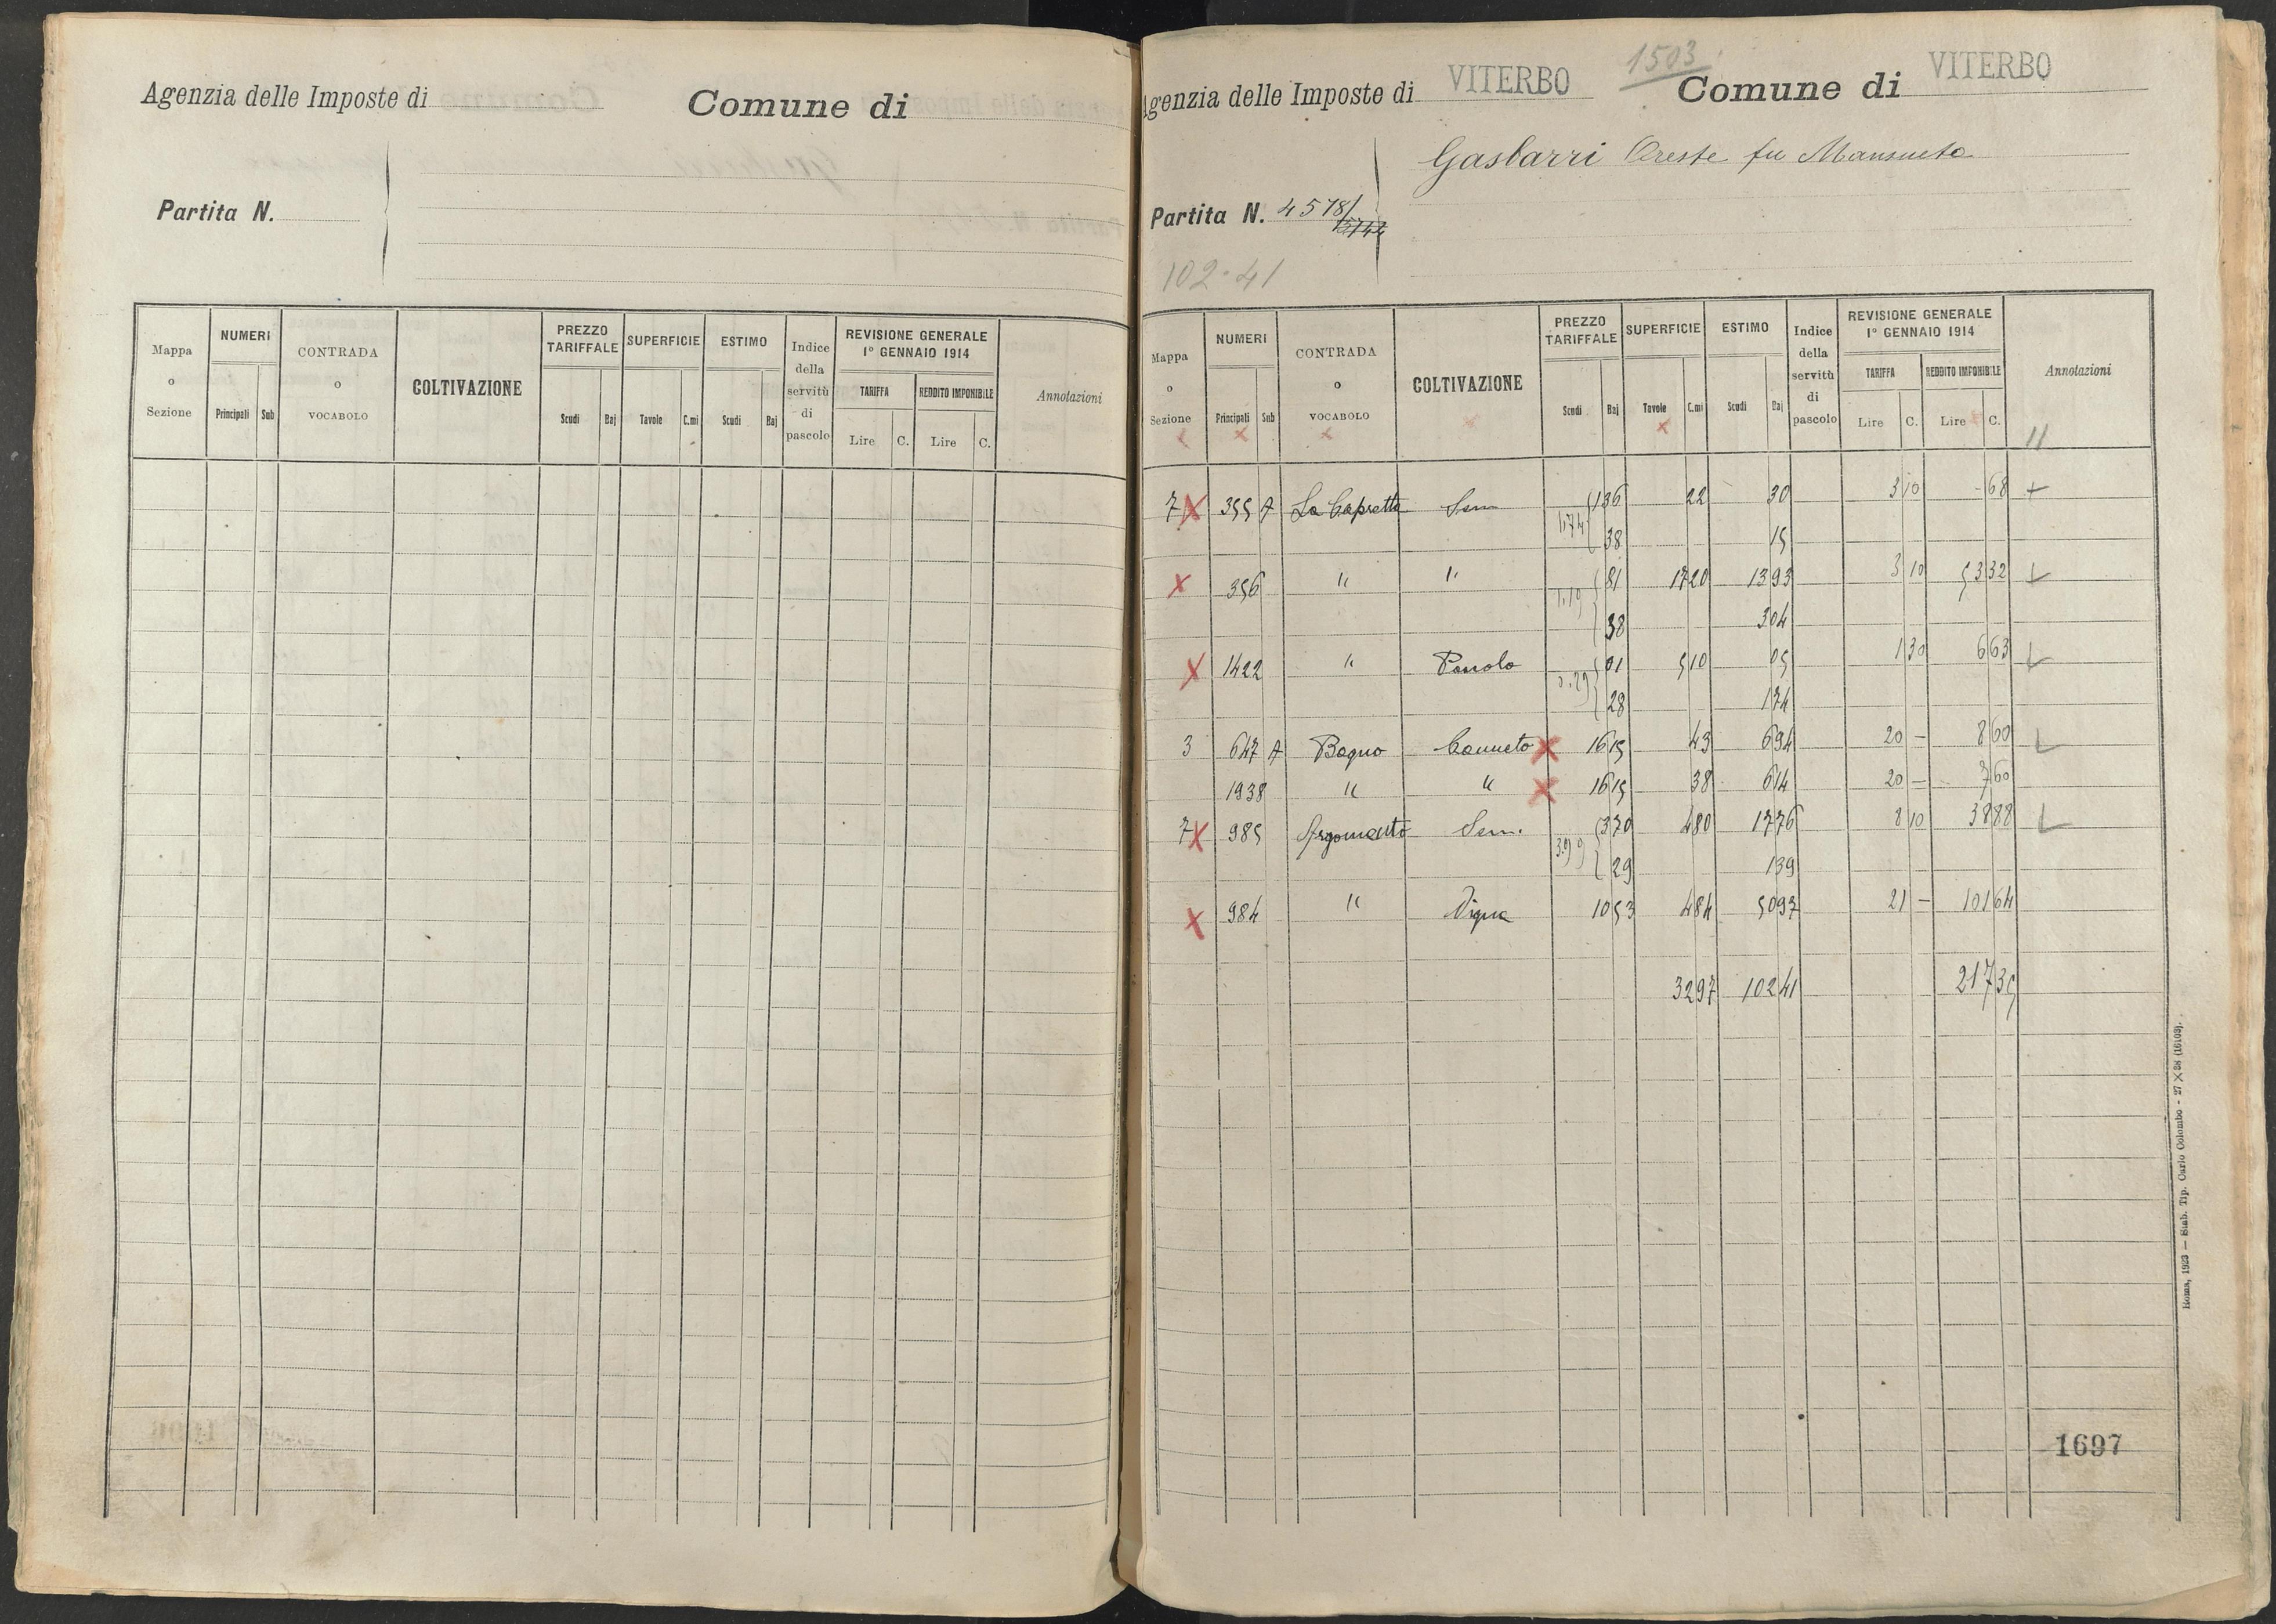 Agenzia delle Imposte di
Comune di
Partita N.
Mappa o Sezione
NUMERI
Principali Sub
CONTRADA o VOCABOLO
COLTIVAZIONE
PREZZO TARIFFALE
Scudi Baj
SUPERFICIE
Tavole C.mi
ESTIMO
Scudi Baj
Indice della servitù di pascolo
REVISIONE GENERALE 1° GENNAIO 1914
TARIFFA REDDITO IMPONIBILE
Lire C. Lire C.
Annotazioni
1503
Agenzia delle Imposte di VITERBO Comune di VITERBO
Gasbarri Oreste fu Mansueto
Partita N. 4578/
102.41
Mappa o Sezione
NUMERI
Principali Sub
CONTRADA o VOCABOLO
COLTIVAZIONE
PREZZO TARIFFALE
Scudi Baj
SUPERFICIE
Tavole C.mi
ESTIMO
Scudi Baj
Indice della servitù di pascolo
REVISIONE GENERALE 1° GENNAIO 1914
TARIFFA REDDITO IMPONIBILE
Lire C. Lire C.
Annotazioni
11
7 X 355 A La Capretta Sem 1 36 22 30 3 10 - 68 +
1.74 38 15
X 356 " " 81 17 20 13 93 3 10 53 32
1.19 38 3 04
X 1422 " Pascolo 01 5 10 05 1 30 6 63
0.29 28 1 74
3 647 A Bagno Canneto X 16 15 43 6 94 20 - 8 60
1938 " " X 16 15 38 6 14 20 - 7 60
7 X 985 Argomento Sem. 3 70 4 80 17 76 8 10 38 88
3.99 29 1 39
X 984 " Vigna 10 53 4 84 50 97 21 - 101 64
32 97 102 41 217 35
1697
Roma, 1923 — Stab. Tip. Carlo Colombo - 27 X 38 (16103).